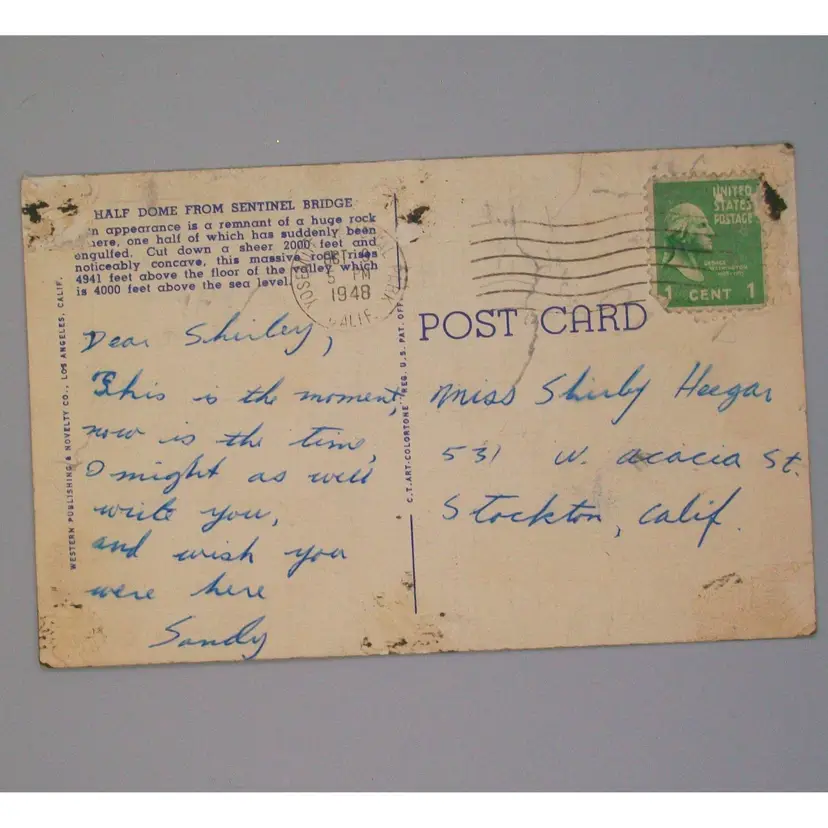 HALF DOME FROM SENTINEL BRIDGE
in appearance is a remnant of a huge rock
sphere, one half of which has suddenly been
engulfed. Cut down a sheer 2000 feet and
noticeably concave, this massive rock rises
4941 feet above the floor of the valley which
is 4000 feet above the sea level.
WESTERN PUBLISHING & NOVELTY CO., LOS ANGELES, CALIF.
Dear Shirley,
This is the moment,
now is the time,
I might as well
write you,
and wish you
were here
Sandy
C.T. ART-COLORTONE REG. U.S. PAT. OFF.
OCT
5 PM
1948
CALIF.
UNITED
STATES
POSTAGE
GEORGE
WASHINGTON
1 CENT 1
POST CARD
Miss Shirly Heegar
531 W. acacia St.
Stockton, Calif.